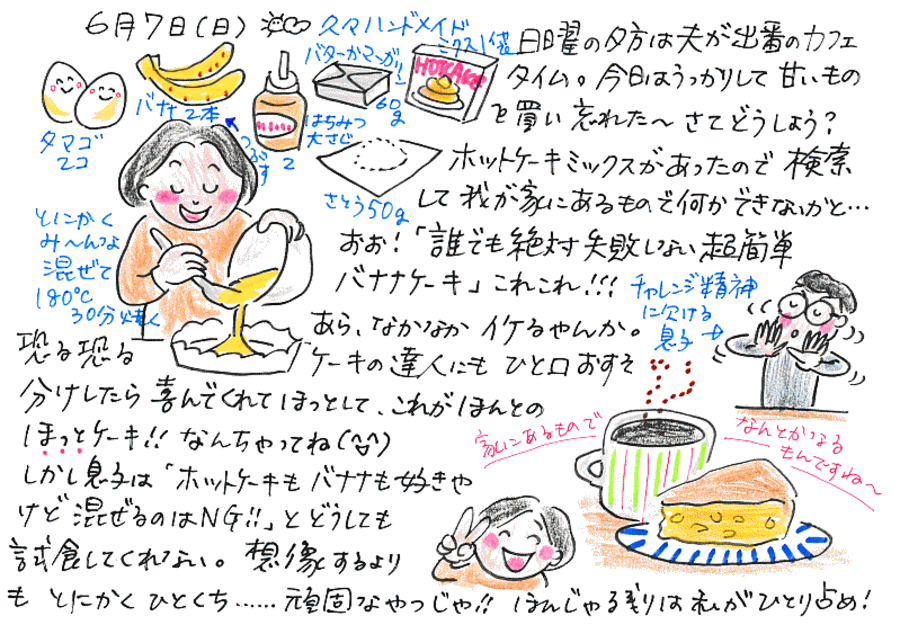 6月7日(日)
久々ハンドメイド
タマゴ
2コ
バナナ2本
つぶす
はちみつ
大さじ
2
バターかマーガリン
60g
ミックス1袋
HOTCAKE
さとう50g
とにかく
み〜んな
混ぜて
180℃
30分焼く
日曜の夕方は夫が出番のカフェ
タイム。今日はうっかりして甘いもの
を買い忘れた〜さてどうしよう?
ホットケーキミックスがあったので検索
して我が家にあるもので何かできないかと…
おお!「誰でも絶対失敗しない超簡単
バナナケーキ」これこれ!!!
チャレンジ精神
に欠ける
息子
あら、なかなかイケるやんか。
恐る恐る
ケーキの達人にもひと口おすそ
分けしたら喜んでくれてほっとして、これがほんとの
ほっとケーキ!!なんちゃってね(^^)
しかし息子は「ホットケーキもバナナも好きや
けど混ぜるのはNG!!」とどうしても
試食してくれない。想像するより
もとにかくひとくち……頑固なやつじゃ!!ほんじゃ残りは私がひとり占め!
家にあるもので
なんとかなる
もんですね〜